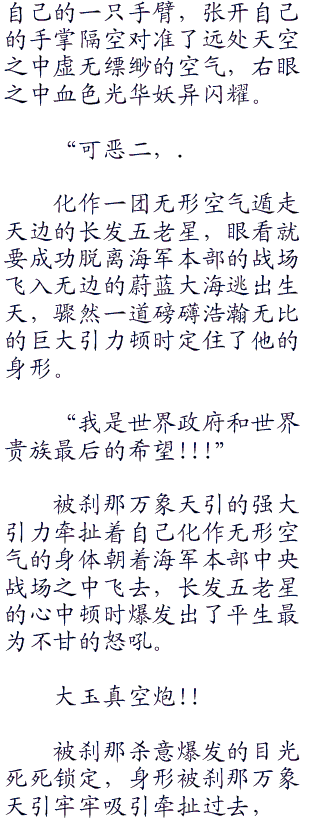 自己的一只手臂，张开自己
的手掌隔空对准了远处天空
之中虚无缥缈的空气，右眼
之中血色光华妖异闪耀。
“可恶二，.
化作一团无形空气遁走
天边的长发五老星，眼看就
要成功脱离海军本部的战场
飞入无边的蔚蓝大海逃出生
天，骤然一道磅礴浩瀚无比
的巨大引力顿时定住了他的
身形。
“我是世界政府和世界
贵族最后的希望!!!”
被刹那万象天引的强大
引力牵扯着自己化作无形空
气的身体朝着海军本部中央
战场之中飞去，长发五老星
的心中顿时爆发出了平生最
为不甘的怒吼。
大玉真空炮!!
被刹那杀意爆发的目光
死死锁定，身形被刹那万象
天引牢牢吸引牵扯过去，